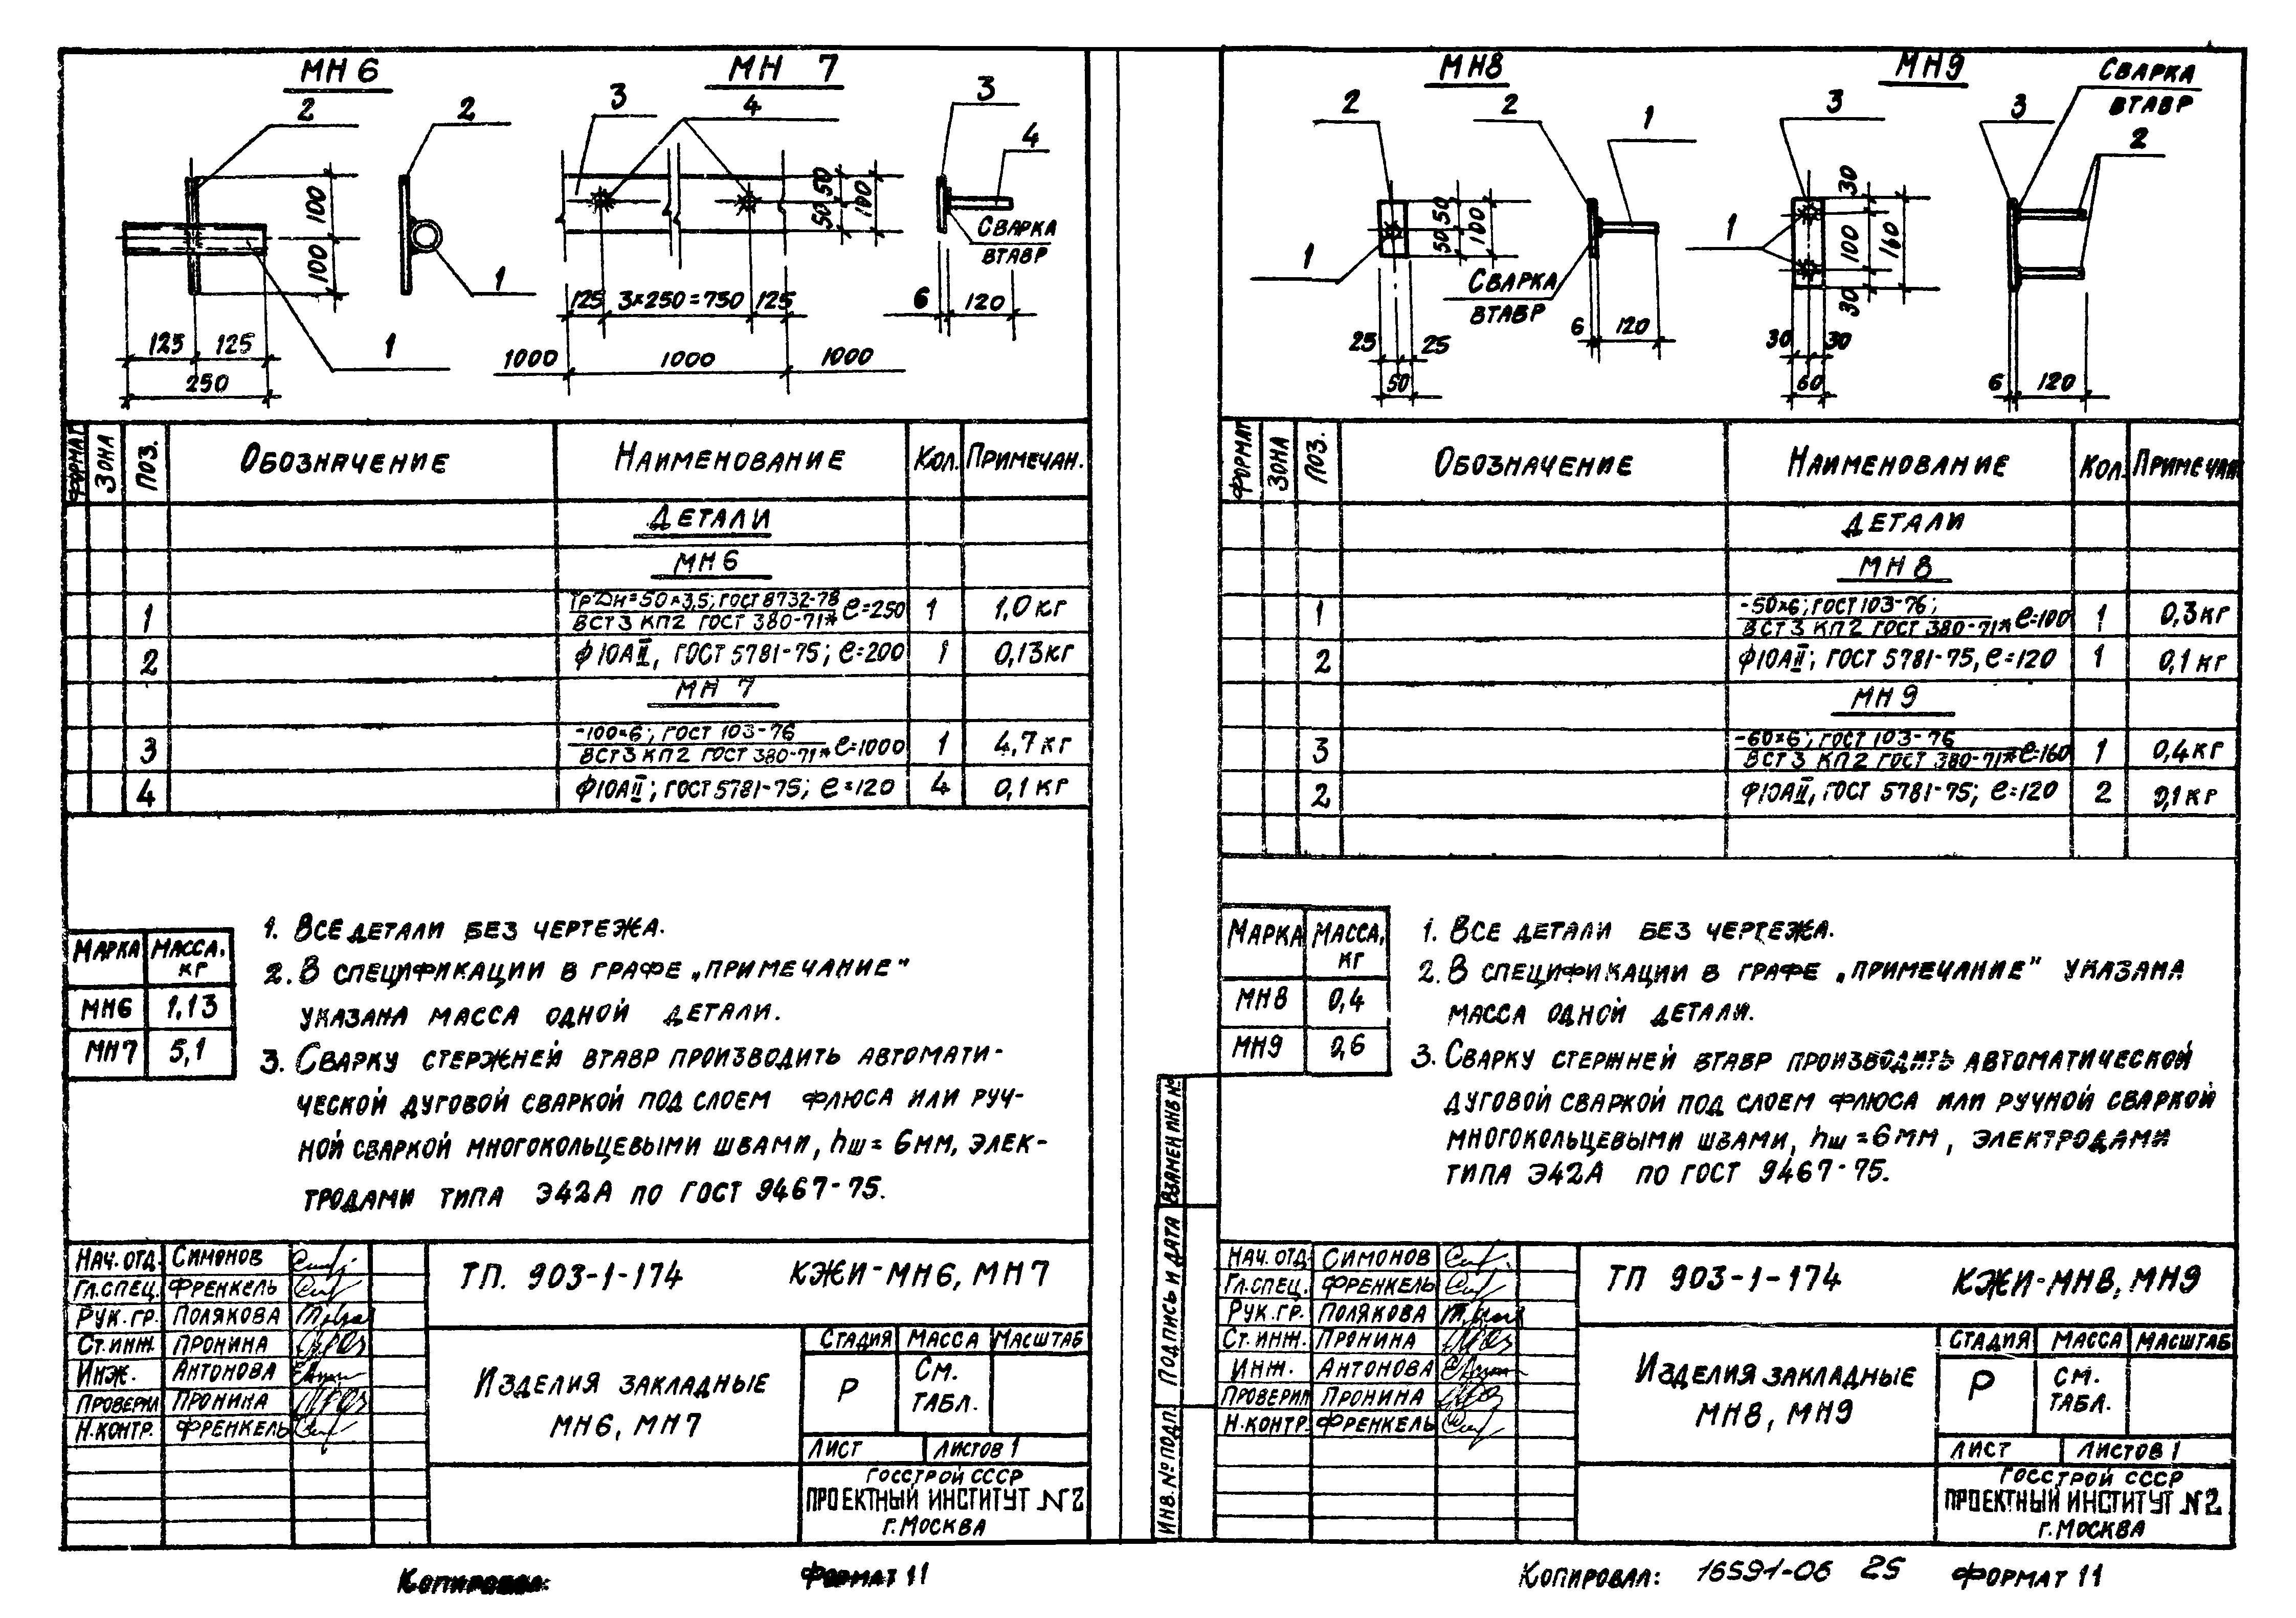 МН 6
МН 7
2
2
3
4
3
4
100
100
50
50
100
СВАРКА
ВТАВР
1
125
3×250=750
125
6
120
125
125
1
250
1000
1000
1000
ФОРМАТ
ЗОНА
ПОЗ.
ОБОЗНАЧЕНИЕ
НАИМЕНОВАНИЕ
КОЛ.
ПРИМЕЧАН.
ДЕТАЛИ
МН 6
1 ТР Дн=50×3,5; ГОСТ 8732-78 / ВСТ 3 КП2 ГОСТ 380-71* ℓ=250 1 1,0 кг
2 Ф10АII, ГОСТ 5781-75; ℓ=200 1 0,13 кг
МН 7
3 -100×6; ГОСТ 103-76 / ВСТ 3 КП2 ГОСТ 380-71* ℓ=1000 1 4,7 кг
4 Ф10АII; ГОСТ 5781-75; ℓ=120 4 0,1 кг
МАРКА МАССА, КГ
МН6 1,13
МН7 5,1
1. ВСЕ ДЕТАЛИ БЕЗ ЧЕРТЕЖА.
2. В СПЕЦИФИКАЦИИ В ГРАФЕ „ПРИМЕЧАНИЕ"
УКАЗАНА МАССА ОДНОЙ ДЕТАЛИ.
3. СВАРКУ СТЕРЖНЕЙ ВТАВР ПРОИЗВОДИТЬ АВТОМАТИ-
ЧЕСКОЙ ДУГОВОЙ СВАРКОЙ ПОД СЛОЕМ ФЛЮСА ИЛИ РУЧ-
НОЙ СВАРКОЙ МНОГОКОЛЬЦЕВЫМИ ШВАМИ, hш = 6ММ, ЭЛЕК-
ТРОДАМИ ТИПА Э42А ПО ГОСТ 9467-75.
НАЧ. ОТД. СИМОНОВ
ГЛ. СПЕЦ. ФРЕНКЕЛЬ
РУК. ГР. ПОЛЯКОВА
СТ. ИНЖ. ПРОНИНА
ИНЖ. АНТОНОВА
ПРОВЕРИЛ ПРОНИНА
Н. КОНТР. ФРЕНКЕЛЬ
ТП. 903-1-174 КЖИ-МН6, МН7
ИЗДЕЛИЯ ЗАКЛАДНЫЕ
МН6, МН7
СТАДИЯ МАССА МАСШТАБ
Р СМ. ТАБЛ.
ЛИСТ ЛИСТОВ 1
ГОССТРОЙ СССР
ПРОЕКТНЫЙ ИНСТИТУТ N2
г. МОСКВА
КОПИРОВАЛ:
ФОРМАТ 11
МН8
МН9
СВАРКА
ВТАВР
2
2
1
3
3
2
50
50
100
30
100
30
160
1
1
СВАРКА
ВТАВР
25
25
50
6
120
30
30
60
6
120
ФОРМАТ
ЗОНА
ПОЗ.
ОБОЗНАЧЕНИЕ
НАИМЕНОВАНИЕ
КОЛ.
ПРИМЕЧАН
ДЕТАЛИ
МН 8
1 -50×6; ГОСТ 103-76; / ВСТ 3 КП2 ГОСТ 380-71* ℓ=100 1 0,3 кг
2 Ф10АII; ГОСТ 5781-75, ℓ=120 1 0,1 кг
МН 9
3 -60×6; ГОСТ 103-76 / ВСТ 3 КП2 ГОСТ 380-71* ℓ=160 1 0,4 кг
2 Ф10АII, ГОСТ 5781-75; ℓ=120 2 0,1 кг
МАРКА МАССА, КГ
МН8 0,4
МН9 0,6
1. ВСЕ ДЕТАЛИ БЕЗ ЧЕРТЕЖА.
2. В СПЕЦИФИКАЦИИ В ГРАФЕ „ПРИМЕЧАНИЕ" УКАЗАНА
МАССА ОДНОЙ ДЕТАЛИ.
3. СВАРКУ СТЕРЖНЕЙ ВТАВР ПРОИЗВОДИТЬ АВТОМАТИЧЕСКОЙ
ДУГОВОЙ СВАРКОЙ ПОД СЛОЕМ ФЛЮСА ИЛИ РУЧНОЙ СВАРКОЙ
МНОГОКОЛЬЦЕВЫМИ ШВАМИ, hш = 6ММ, ЭЛЕКТРОДАМИ
ТИПА Э42А ПО ГОСТ 9467-75.
ВЗАМЕН ИНВ №
ПОДПИСЬ И ДАТА
ИНВ. № ПОДП.
НАЧ. ОТД. СИМОНОВ
ГЛ. СПЕЦ. ФРЕНКЕЛЬ
РУК. ГР. ПОЛЯКОВА
СТ. ИНЖ. ПРОНИНА
ИНЖ. АНТОНОВА
ПРОВЕРИЛ ПРОНИНА
Н. КОНТР. ФРЕНКЕЛЬ
ТП 903-1-174 КЖИ-МН8, МН9
ИЗДЕЛИЯ ЗАКЛАДНЫЕ
МН8, МН9
СТАДИЯ МАССА МАСШТАБ
Р СМ. ТАБЛ.
ЛИСТ ЛИСТОВ 1
ГОССТРОЙ СССР
ПРОЕКТНЫЙ ИНСТИТУТ N2
г. МОСКВА
КОПИРОВАЛ: 16591-06 25 ФОРМАТ 11